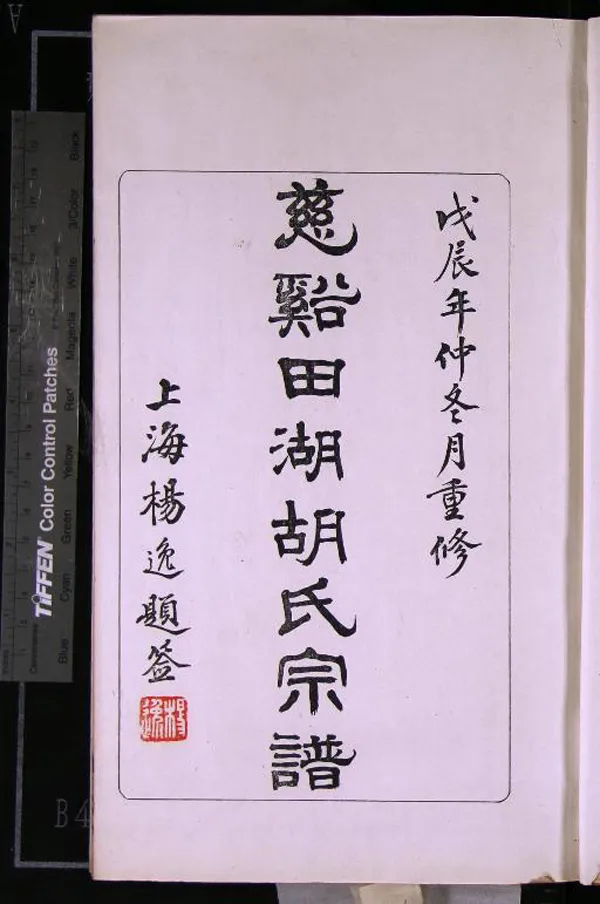 戊辰年仲冬月重修
慈谿田湖胡氏宗譜
上海楊逸題签
楊逸
TIFFEN® Color Control Patches
Blue Cyan Green Yellow Red Magenta White 3/Color Black
B4
A